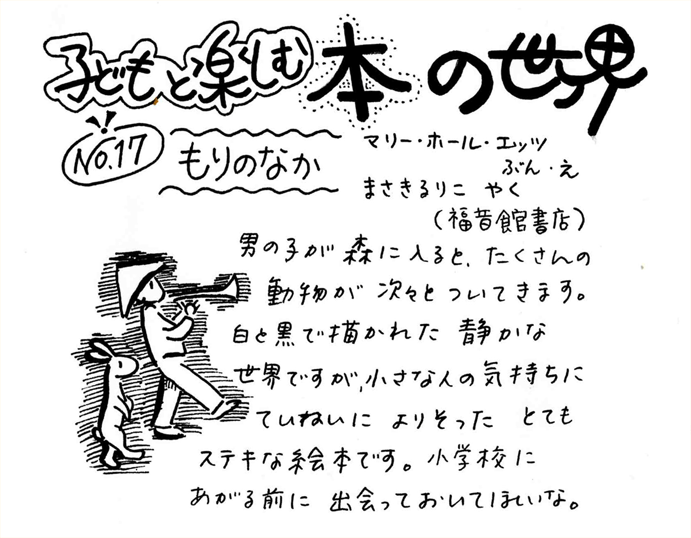 子どもと楽しむ本の世界
No.17
もりのなか
マリー・ホール・エッツ
ぶん・え
まさきるりこ やく
(福音館書店)
男の子が森に入ると、たくさんの
動物が次々とついてきます。
白と黒で描かれた静かな
世界ですが、小さな人の気持ちに
ていねいによりそったとても
ステキな絵本です。小学校に
あがる前に出会っておいてほしいな。